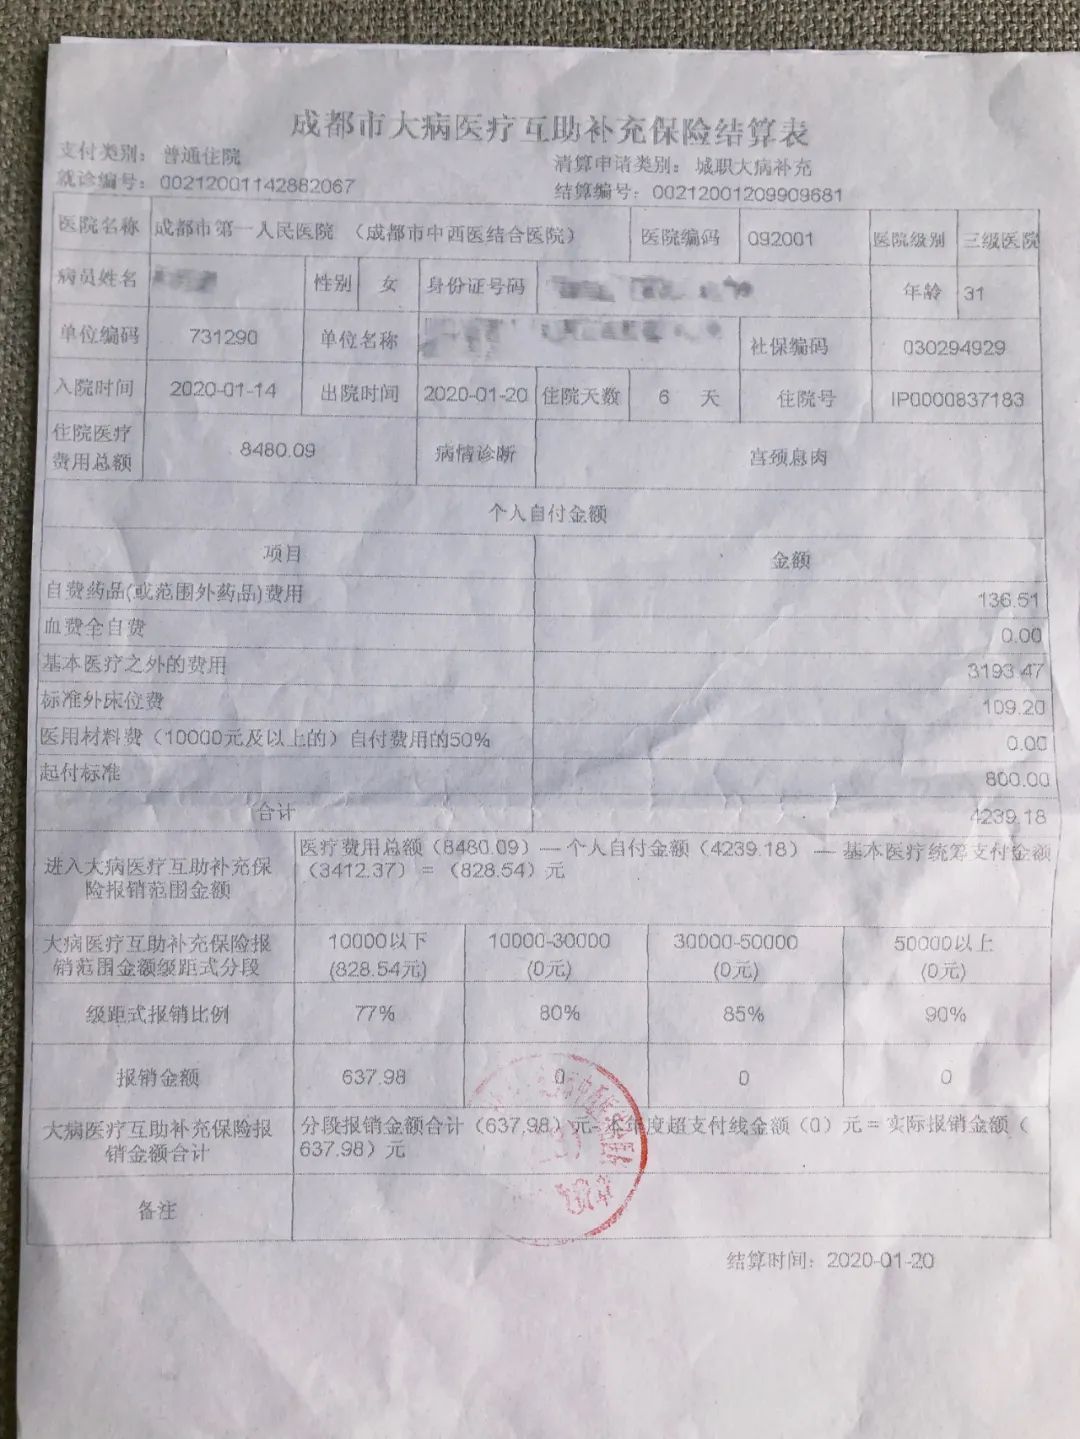 成都市大病医疗互助补充保险结算表
支付类别：普通住院
清算申请类别：城职大病补充
就诊编号：00212001142882067
结算编号：00212001209909681
医院名称 成都市第一人民医院 （成都市中西医结合医院） 医院编码 092001 医院级别 三级医院
病员姓名 性别 女 身份证号码 年龄 31
单位编码 731290 单位名称 社保编码 030294929
入院时间 2020-01-14 出院时间 2020-01-20 住院天数 6 天 住院号 IP0000837183
住院医疗
费用总额 8480.09 病情诊断 宫颈息肉
个人自付金额
项目 金额
自费药品(或范围外药品)费用 136.51
血费全自费 0.00
基本医疗之外的费用 3193.47
标准外床位费 109.20
医用材料费（10000元及以上的）自付费用的50% 0.00
起付标准 800.00
合计 4239.18
进入大病医疗互助补充保
险报销范围金额
医疗费用总额（8480.09）— 个人自付金额（4239.18） — 基本医疗统筹支付金额
（3412.37） = （828.54）元
大病医疗互助补充保险报
销范围金额级距式分段
10000以下 10000-30000 30000-50000 50000以上
(828.54元) (0元) (0元) (0元)
级距式报销比例 77% 80% 85% 90%
报销金额 637.98 0 0 0
大病医疗互助补充保险报
销金额合计
分段报销金额合计（637.98）元- 本年度超支付线金额（0）元 = 实际报销金额（
637.98）元
备注
结算时间：2020-01-20